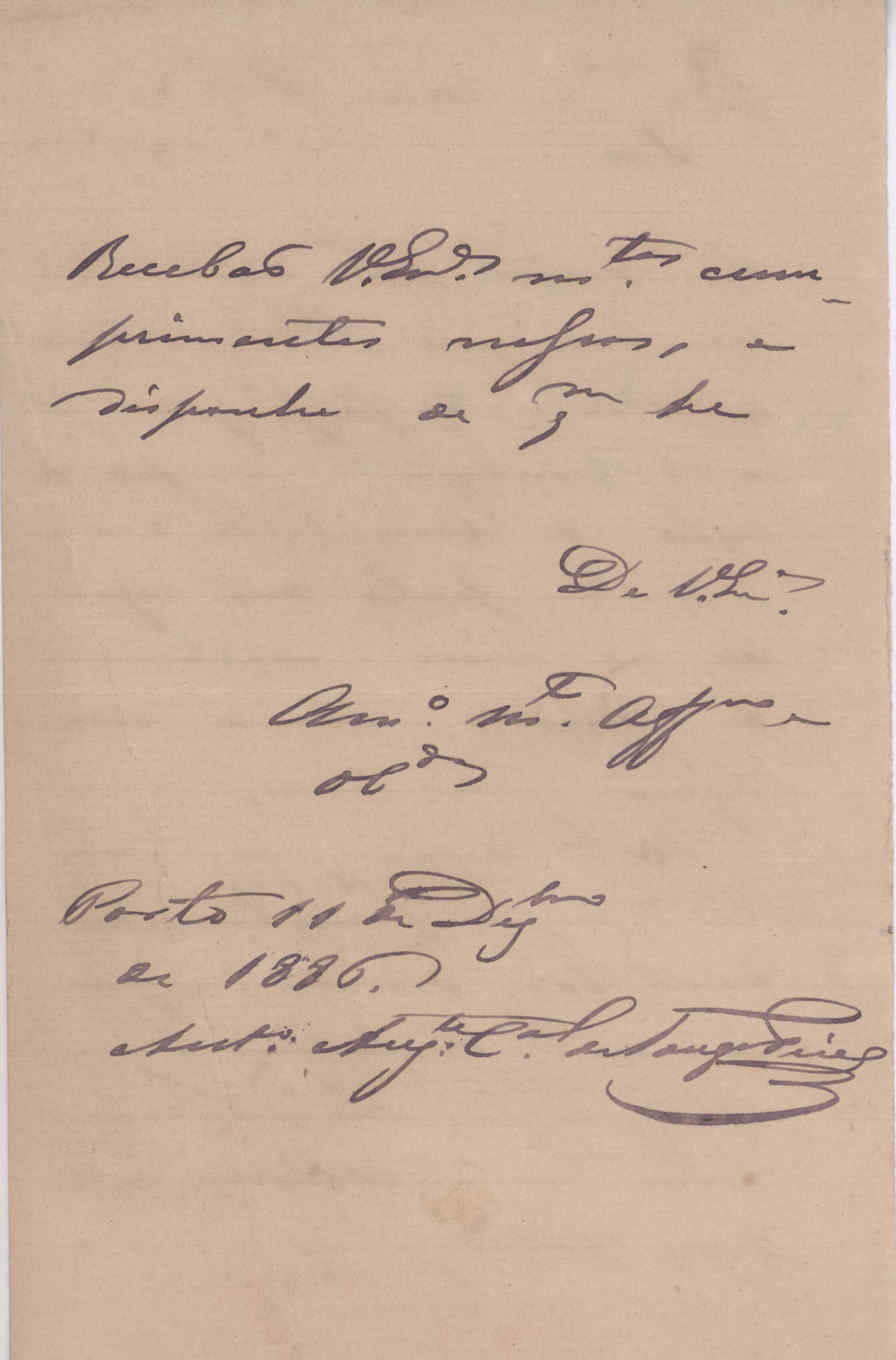 Recebaõ V. Ex.as m.tos cum-
primentos nossos, e
disponha de q.m he
De V. Ex.a
Am.o m.t Aff.mo e
Ob.do
Porto 11 de Dez.bro
de 1886.
Ant.o Aug.to C.al de Souza Pires